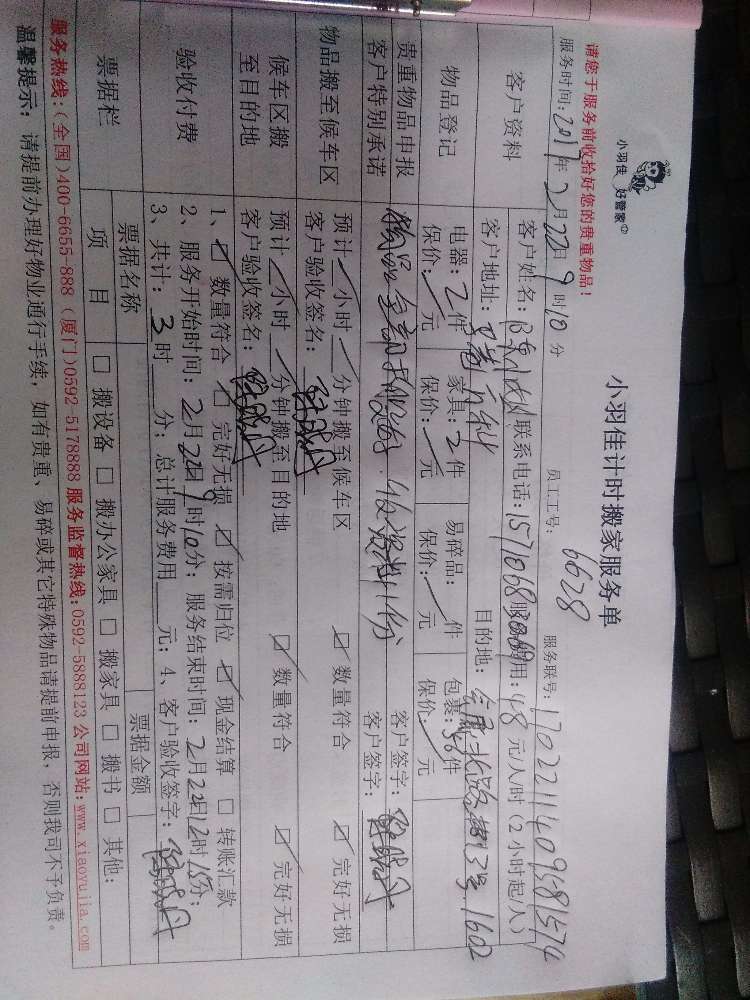 小羽佳 好管家
小羽佳计时搬家服务单
请您于服务前收拾好您的贵重物品！
员工工号：6628
服务联号：1702211409581574
服务时间：2017年2月22日9时10分
客户资料
客户姓名： 联系电话： 费用：48元/人/时（2小时起/人）
客户地址： 目的地：
物品登记
电器：2件 家具：2件 易碎品： 件 包裹：36件
保价： 元 保价： 元 保价： 元 保价： 元
贵重物品申报 客户签字：
客户特别承诺 客户签字：
物品搬至候车区
预计 小时 分钟搬至候车区 ☑数量符合 ☑完好无损
客户验收签名：
候车区搬至目的地
预计 小时 分钟搬至目的地 ☑数量符合 ☑完好无损
客户验收签名：
验收付费
1、☑数量符合 ☑完好无损 ☑按需归位 ☑现金结算 □转账汇款
2、服务开始时间：2月22日9时10分；服务结束时间：2月22日12时15分；
3、共计：3时 分；总计服务费用 元；4、客户验收签字：
票据栏
票据名称 票据金额
项目 □搬设备 □搬办公家具 □搬家具 □搬书 □其他：
服务热线：(全国)400-6655-888 (厦门)0592-5178888 服务监督热线：0592-5888123 公司网站：www.xiaoyujia.com
温馨提示：请提前办理好物业通行手续，如有贵重、易碎或其它特殊物品请提前申报，否则我司不予负责。